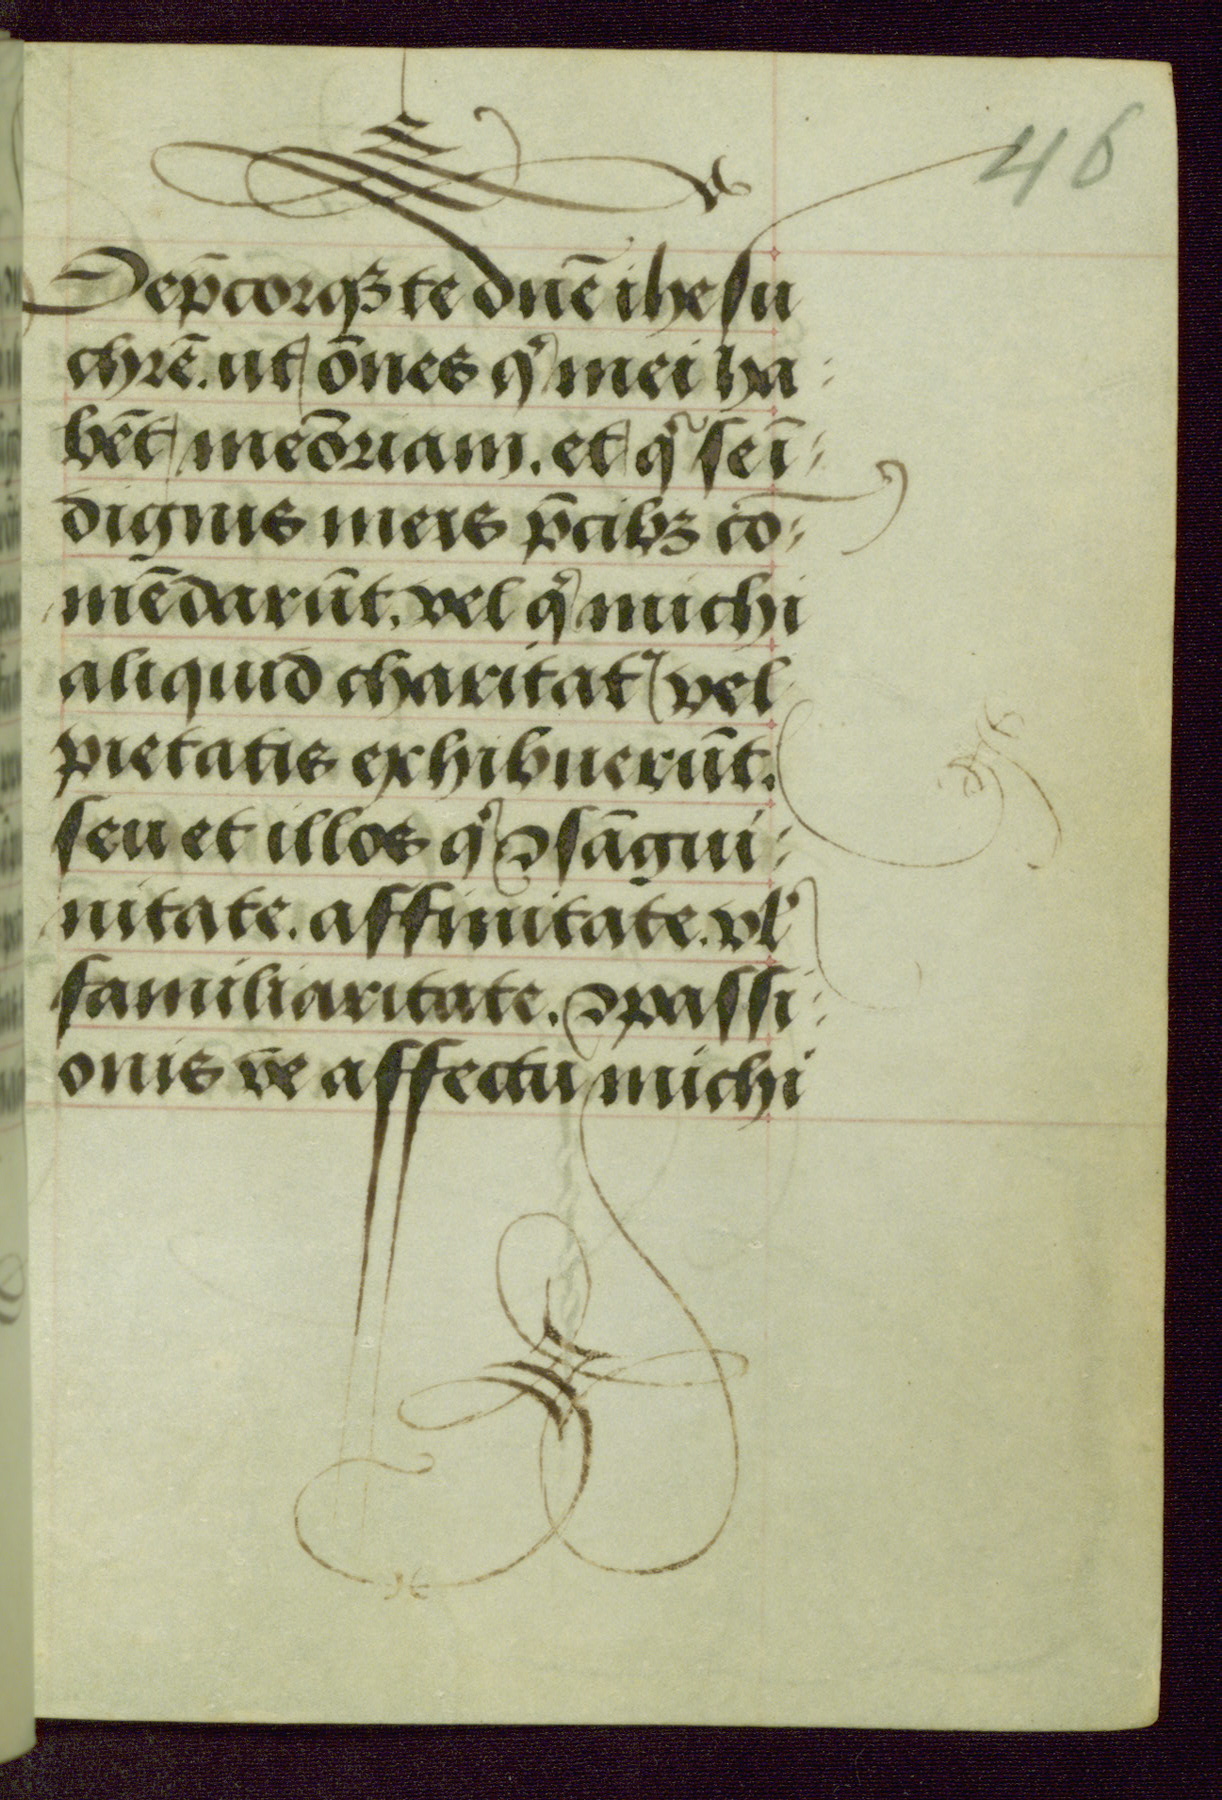 46
Dep̄corqꝫ te dn̄e ihesu
chr̄e. ut o᷈nes qͥ mei ha⸗
bēt meōriam. et qͥ se ī⸗
dignis meis p̄cibꝫ cō⸗
mēdarūt. vel qͥ michi
aliquid charitatꝭ vel
pietatis exhibuerūt.
seu et illos qͥ ꝯsāgui⸗
nitate. affinitate. vlˀ
familiaritate. ꝯpassi⸗
onis ve affectu michi